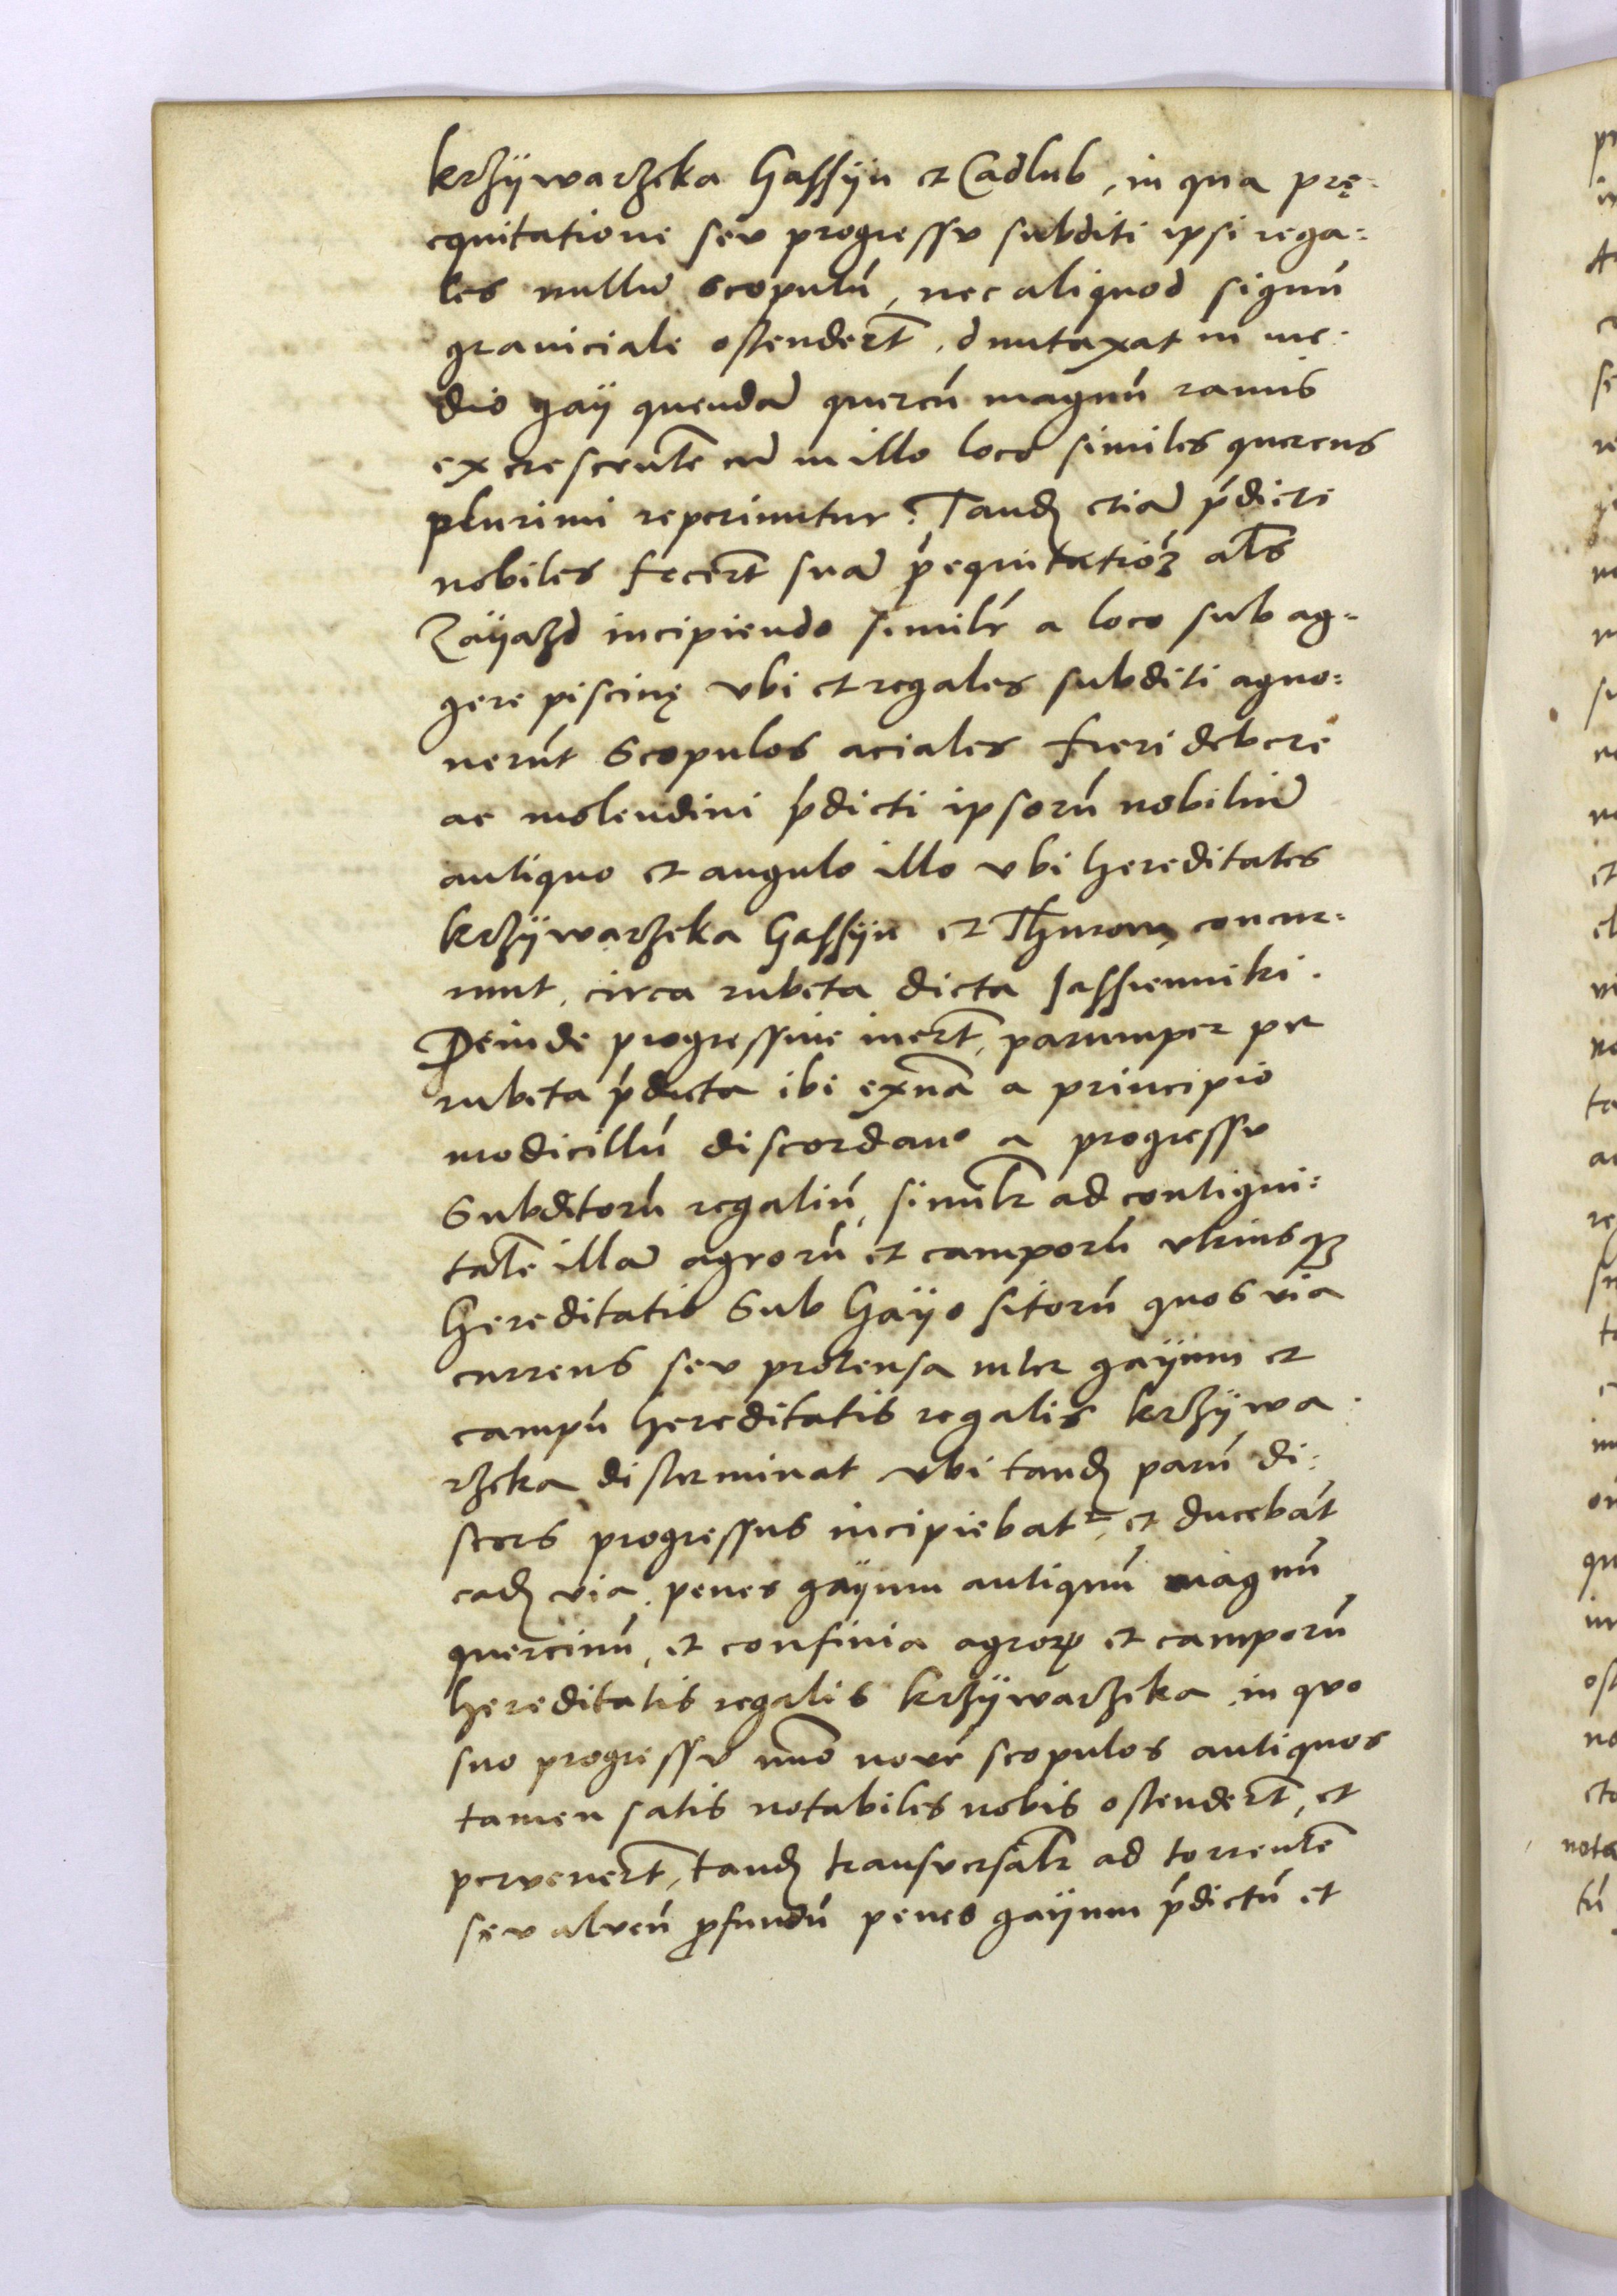 krzÿwarzeka Gassÿn et Cadlub, in qua prę=
equitatione seu progressu subditi ipsi rega=
les nullū scopulū, nec aliquod signū
graniciale ostendert̄, duntaxat in me=
dio gaÿ quendā quercū magnū ramis
excrescentē cū in illo loco similes quercus
plurimi reperiuntur. Tandē etiā p̄dicti
nobiles fecert̄ suā p̄equitatiōꝫ al̄s
Zaÿazd incipiendo similr̄ a loco sub ag=
gere piscinę vbi et regales subditi agno=
uerūt Scopulos aciales fieri debere
ac molendini p̄dicti ipsorū nobiliū
antiquo et angulo illo vbi hereditates
krzÿwarzeka Gassÿn et Thurow concur=
runt, circa rubeta dicta Jassienniki.
Deinde progressiue iuert̄, parumper per
rubeta p̄dicta ibi exn̄a a principio
modicillū discordan̄o a progressu
Subditorū regaliū, similr̄ ad contigui=
tatē illā agrorū et camporū vtriusqꝫ
hereditatis Sub Gaÿo sitorū quos via
currens seu protensa inter gaÿum et
campū hereditatis regalis krzÿwa=
rzeka disterminat vbi tandē parū di=
scers progressus incipiebatʳ, et ducebāt
eadē via penes gaÿum antiquū magnū
quercinū, et confinia agroꝝ et camporū
hereditatis regalis krzÿwarzeka in quo
suo progressu nūo nouē scopulos antiquos
tamen satis notabiles nobis ostendert̄, et
peruenert̄, tandē transuersalr̄ ad torrentē
seu alueū ꝓfundū penes gaÿum p̄dictū et